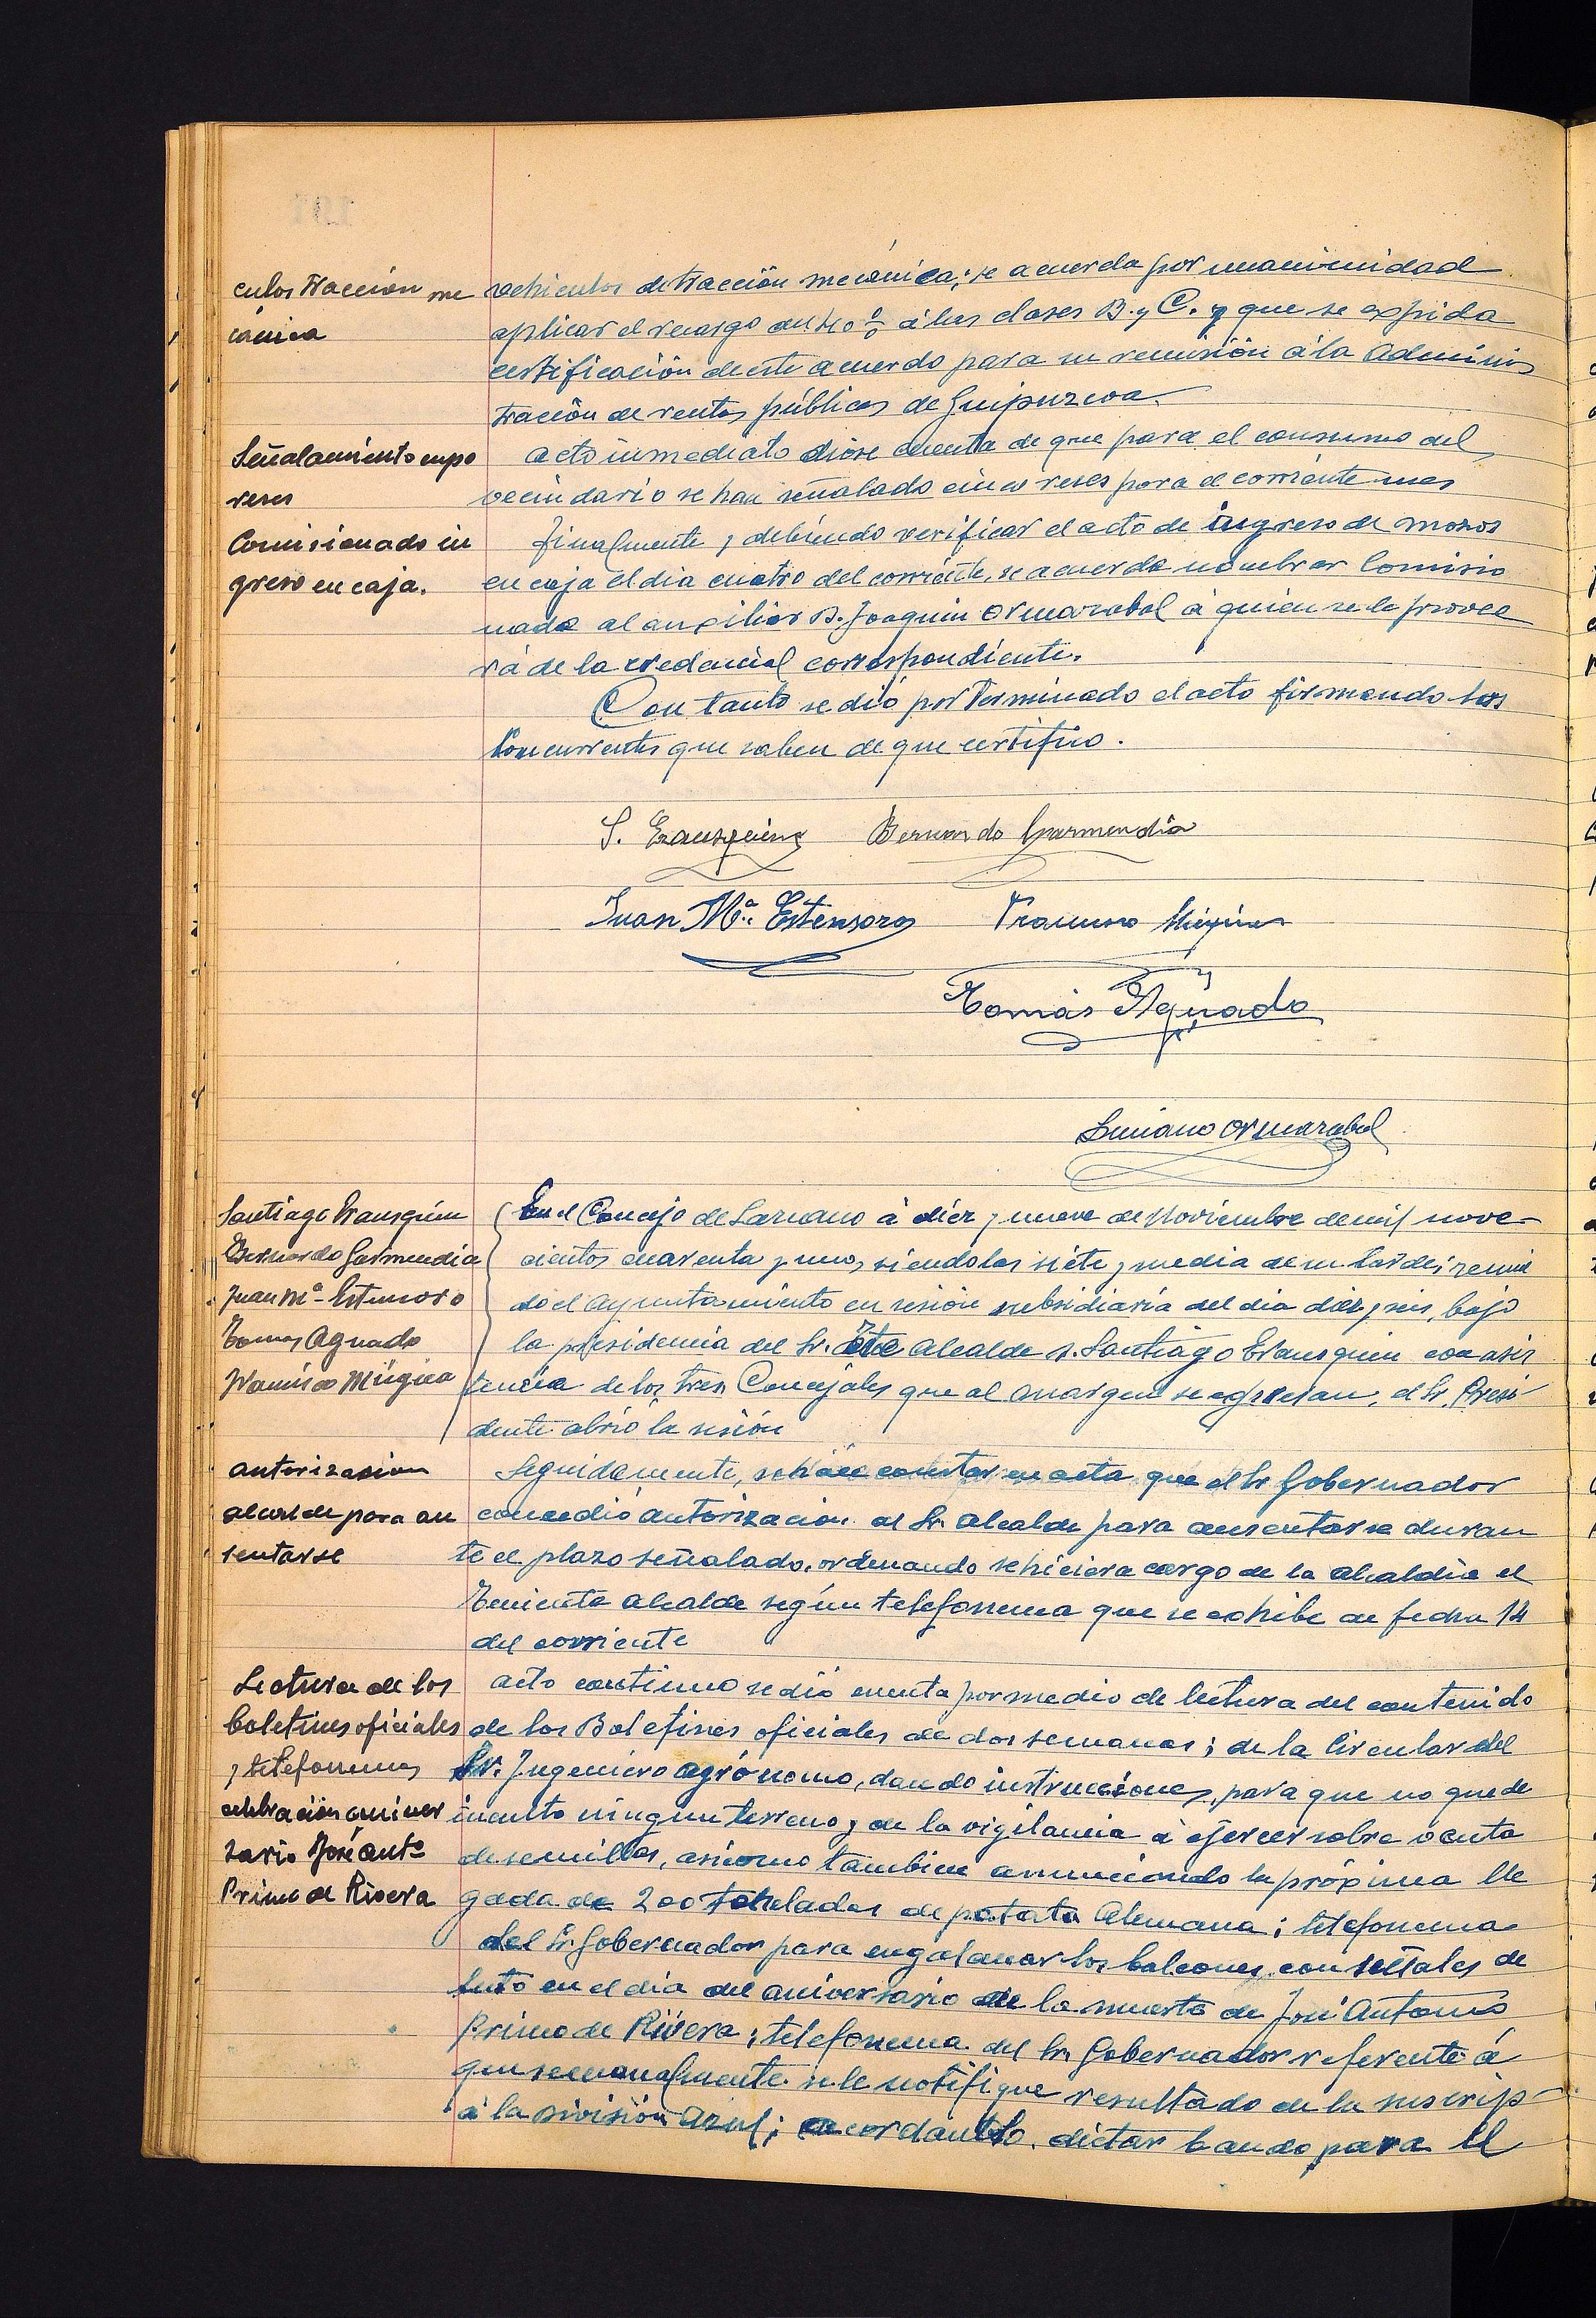 culos tracción me
cánica
vehiculos de tracción mecánica; se acuerda por unanimidad
aplicar el recargo del 40% á las clases B. y C. y que se expida
certificación de este acuerdo para su remisión á la Adminis
tración de rentas públicas de Guipuzcoa.
Señalamiento cupo
reses
acto inmediato dióse cuenta de que para el consumo del
vecindario se han señalado cinco reses para el corriente mes
Comisionado in
greso en caja.
finalmente y debiendo verificar el acto de ingreso de mozos
en caja el dia cuatro del corriente, se acuerda nombrar Comisio
nado al auxiliar D. Joaquin Ormazabal á quien se le provee
rá de la credencial correspondiente.
Con tanto se dió por terminado el acto firmando los
Concurrentes que saben de que certifico.
S. Erausquin Bernardo Garmendia
Juan Mª. Estensoro Francisco Múgica
Tomás Aguado
Luciano Ormazabal
Santiago Erausquin
Bernardo Garmendia
Juan Mª Estensoro
Tomas Aguado
Francisco Múgica
En el Concejo de Lazcano á diez y nueve de Noviembre de mil nove-
cientos cuarenta y uno, siendo las siete y media de su tarde; reuni
do el Ayuntamiento en sesión subsidiaria del dia diez y seis, bajo
la presidencia del Sr. Tte Alcalde D. Santiago Erausquin con asis
tencia de los tres Concejales que al margen se expresan, el Sr. Presi-
dente abrió la sesión
autorización
alcalde para au
sentarse
Seguidamente, se hace constar en acta que el Sr Gobernador
concedió autorización al Sr. Alcalde para ausentarse duran
te el plazo señalado, ordenando se hiciera cargo de la alcaldia el
Teniente alcalde según telefonema que se exhibe de fecha 14
del corriente
Lectura de los
boletines oficiales
y telefonemas
celebración aniver
sario José Antº
Primo de Rivera
acto continuo se dió cuenta por medio de lectura del contenido
de los Boletines oficiales de dos semanas; de la Circular del
Sr. Ingeniero agrónomo, dando instrucciones, para que no quede
inculto ningun terreno y de la vigilancia á ejercer sobre venta
de semillas, asi como tambien anunciando la próxima lle
gada de 200 toneladas de patata Alemana; telefonema
del Sr. Gobernador para engalanar los balcones con señales de
luto en el dia del aniversario de la muerte de José Antonio
Primo de Rivera; telefonema del Sr. Gobernador referente á
que semanalmente se le notifique resultado de la suscrip-
á la División Azul; acordándolo dictar bando para el